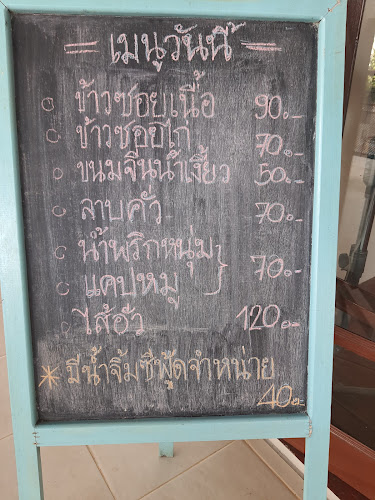 = เมนูวันนี้ =
○ ข้าวซอยเนื้อ 90.-
○ ข้าวซอยไก่ 70.-
○ ขนมจีนน้ำเงี้ยว 50.-
○ ลาบคั่ว 70.-
○ น้ำพริกหนุ่ม
○ แคปหมู } 70.-
○ ไส้อั่ว 120.-
* มีน้ำจิ้มซีฟู้ดจำหน่าย
40.-